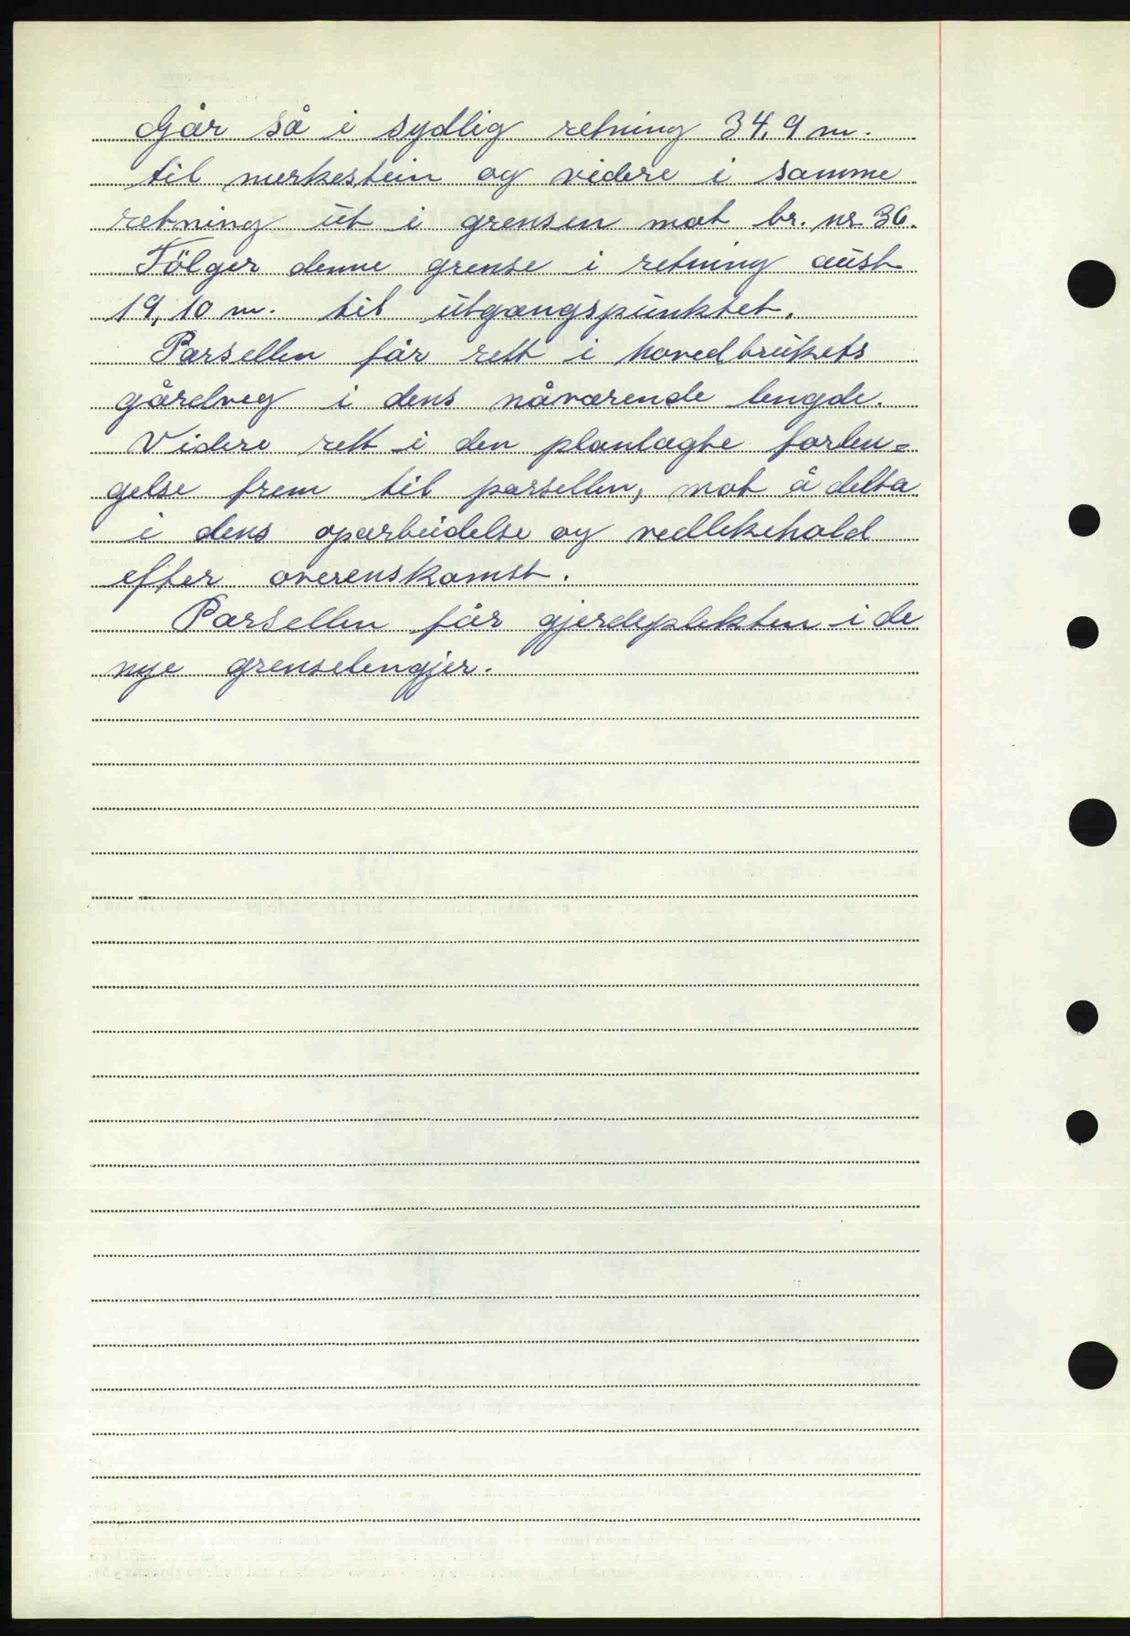 Går så i sydlig retning 34,9 m.
til merkestein og videre i samme
retning ut i grensen mot br. nr. 36.
Følger denne grense i retning aust
19,10 m. til utgangspunktet.
Parsellen får rett i hovedbrukets
gårdveg i dens nåværende lengde.
Videre rett i den planlagte forlen=
gelse frem til parsellen, mot å delta
i dens oparbeidelse og vedlikehold
efter overenskomst.
Parsellen får gjerdeplikten i de
nye grenselengjer.